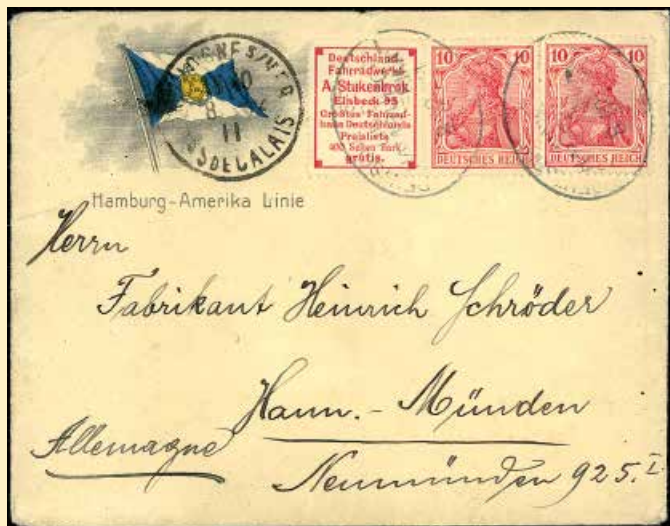 BOULOGNE S/MER
10
8
11
PAS DE CALAIS
Deutschland-
Fahrradwerke
A. Stukenbrok
Einbeck 95
Größtes Fahrrad-
haus Deutschlands
Preisliste
gratis.
10 10
DEUTSCHES REICH
10 10
DEUTSCHES REICH
Hamburg-Amerika Linie
Herrn
Fabrikant Heinrich Schröder
Hann.-Münden
Allemagne
Neumünden 925.I